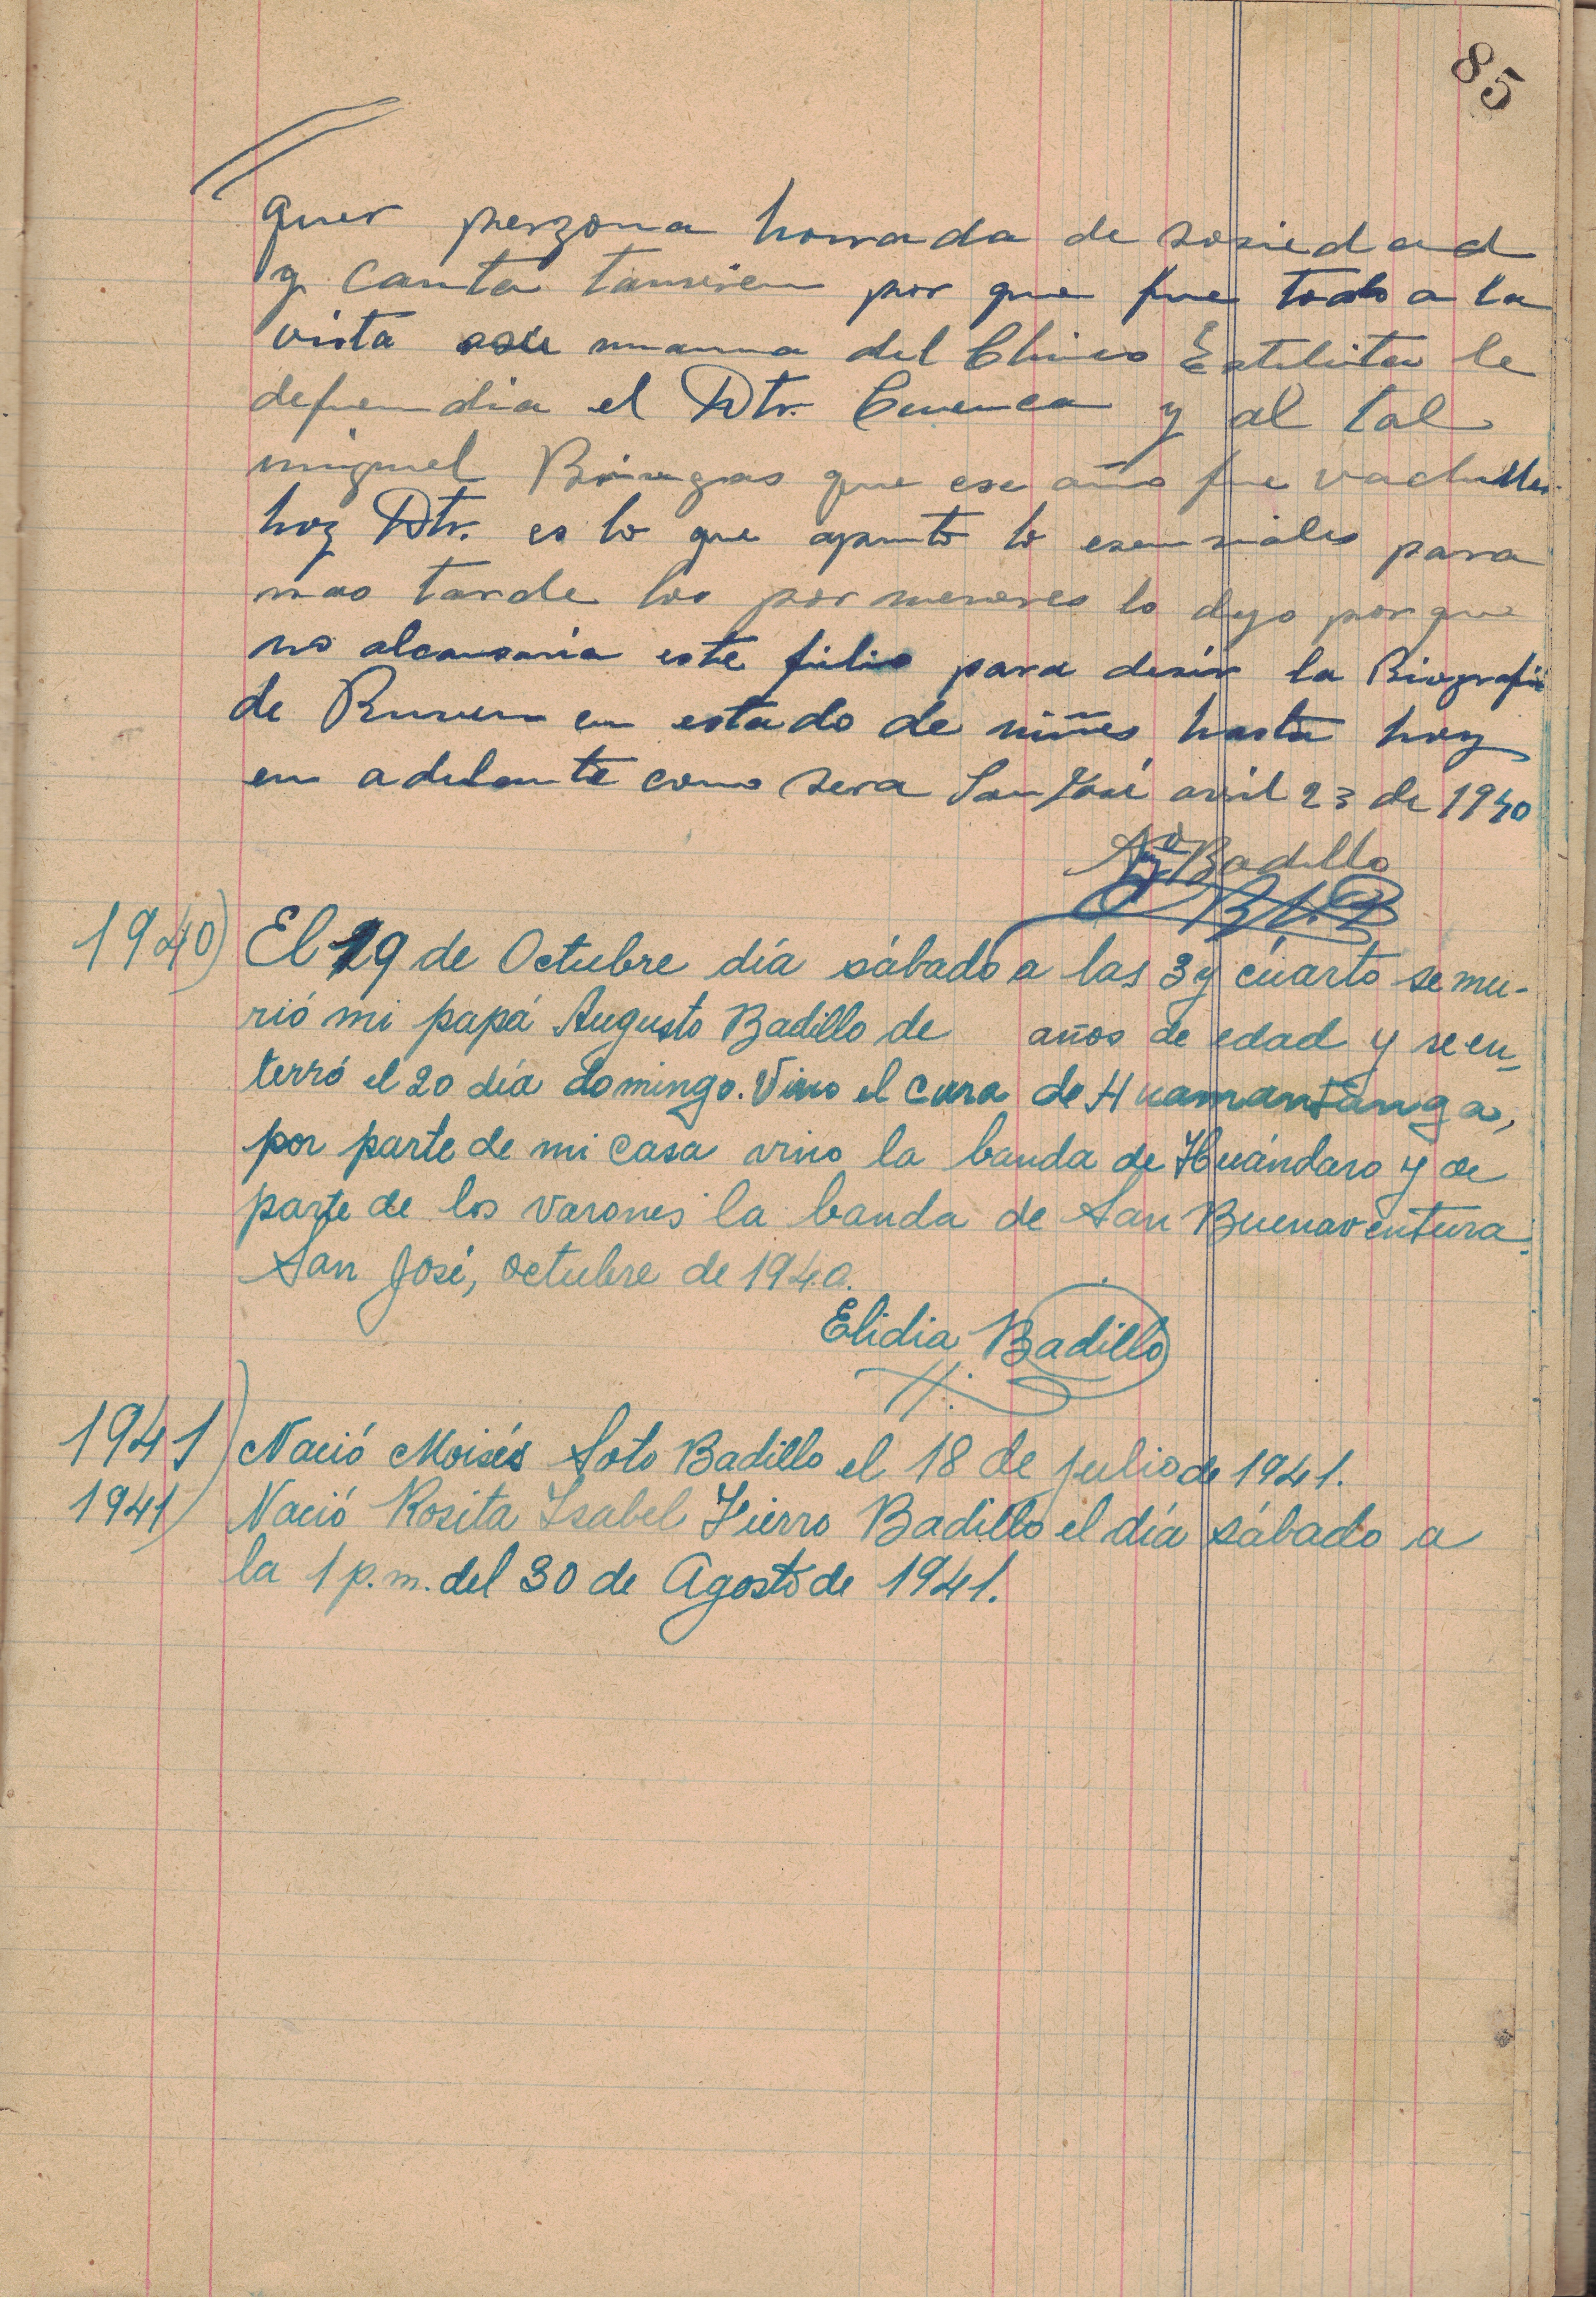 85
quer perzona honrada de sosiedad
y Canta tanvien por que fue todo a la
vista mama del Chino Estilita le
defendia el Dtr. Cuenca y al tal
miguel que ese año fue vachiller
hoy Dtr. es lo que apunto lo esensiales para
mas tarde los por menores lo dejo por que
no alcansaria este fólio para desir la Biografia
de Ruven en estado de niñes hasta hoy
en adelante como sera San José avril 23 de 1940
Badillo
1940) El 19 de Octubre día sábado a las 3 y cuarto se mu-
rió mi papá Augusto Badillo de años de edad y se en-
terró el 20 día domingo. Vino el cura de Huamantanga,
por parte de mi casa vino la banda de Huándaro y de
parte de los varones la banda de San Buenaventura.
San José, octubre de 1940.
Elidia Badillo
1941) Nació Moisés Soto Badillo el 18 de julio de 1941.
1941) Nació Rosita Isabel Fierro Badillo el día sábado a
la 1 p.m. del 30 de Agosto de 1941.